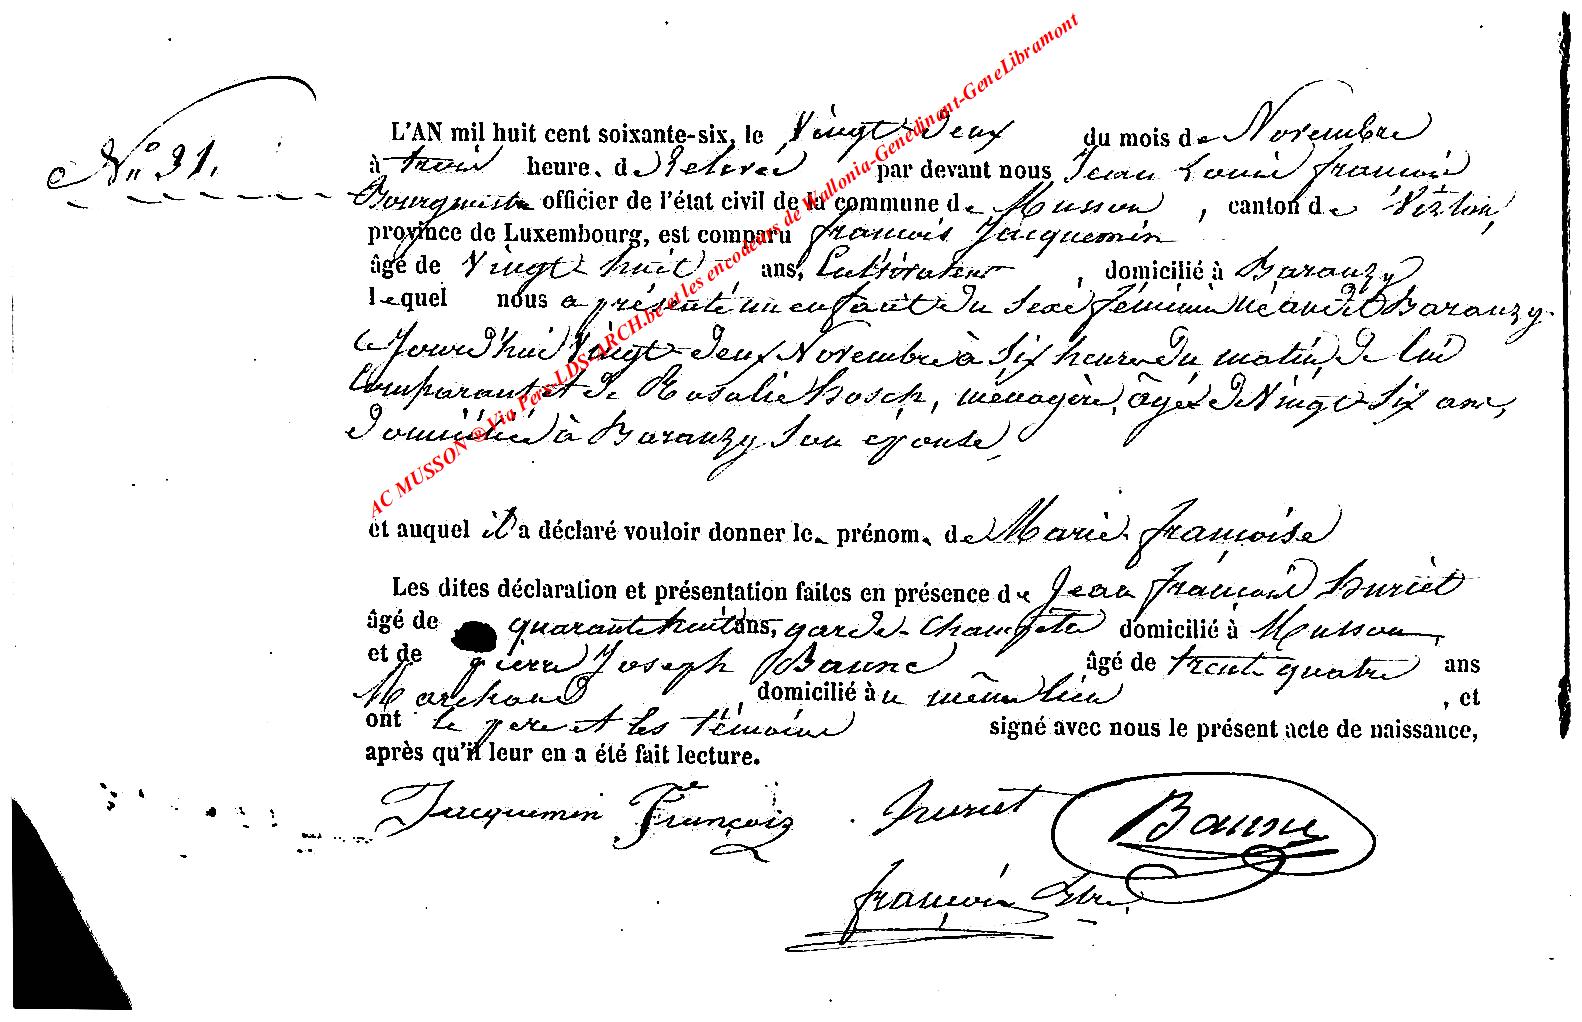 N° 31.
L'AN mil huit cent soixante-six, le Vingt-Deux du mois de Novembre
à trois heure. de Relevée par devant nous Jean Louis françois
Bourgmestre officier de l'état civil de la commune de Musson, canton de Virton,
province de Luxembourg, est comparu françois Jacquemin
âgé de Vingt-huit ans, Cultivateur, domicilié à Baranzy
lequel nous a présenté un enfant du sexe féminin né audit Baranzy
cejourd'hui Vingt-Deux Novembre à six heures du matin, de lui
Comparant et de Rosalie Hosch, ménagère, âgée de Vingt-six ans,
Domiciliée à Baranzy son épouse,
et auquel il a déclaré vouloir donner le prénom. de Marie-françoise
Les dites déclaration et présentation faites en présence de Jean françois huriet
âgé de quarante huit ans, garde-Champêtre domicilié à Musson,
et de pierre Joseph Baune âgé de trente quatre ans
Marchand, domicilié au même lieu, et
ont le père et les témoins signé avec nous le présent acte de naissance,
après qu'il leur en a été fait lecture.
Jacquemin François huriet Baune
françois
AC MUSSON © Via Pers-LDS-ARCH.be et les encodeurs de Wallonia-Genedinant-GeneLibramont